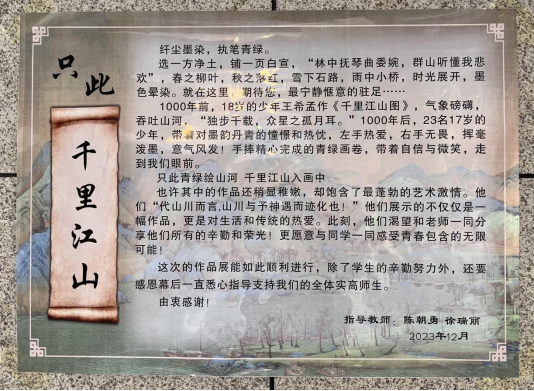 只此
千里江山
纤尘墨染，执笔青绿。
选一方净土，铺一页白宣，“林中抚琴曲委婉，群山听懂我悲
欢”，春之柳叶，秋之落红，雪下石路，雨中小桥，时光展开，墨
色晕染。就在这里，期待您，最宁静惬意的驻足……
1000年前，18岁的少年王希孟作《千里江山图》，气象磅礴，
吞吐山河，“独步千载，众星之孤月耳。”1000年后，23名17岁的
少年，带着对墨韵丹青的憧憬和热忱，左手热爱，右手无畏，挥毫
泼墨，意气风发！手捧精心完成的青绿画卷，带着自信与微笑，走
到我们眼前。
只此青绿绘山河 千里江山入画中
也许其中的作品还稍显稚嫩，却饱含了最蓬勃的艺术激情。他
们“代山川而言，山川与予神遇而迹化也！”他们展示的不仅仅是一
幅作品，更是对生活和传统的热爱。此刻，他们渴望和老师一同分
享他们所有的辛勤和荣光！更愿意与同学一同感受青春包含的无限
可能！
这次的作品展能如此顺利进行，除了学生的辛勤努力外，还要
感恩幕后一直悉心指导支持我们的全体实高师生。
由衷感谢！
指导教师：陈朝勇 徐瑞丽
2023年12月